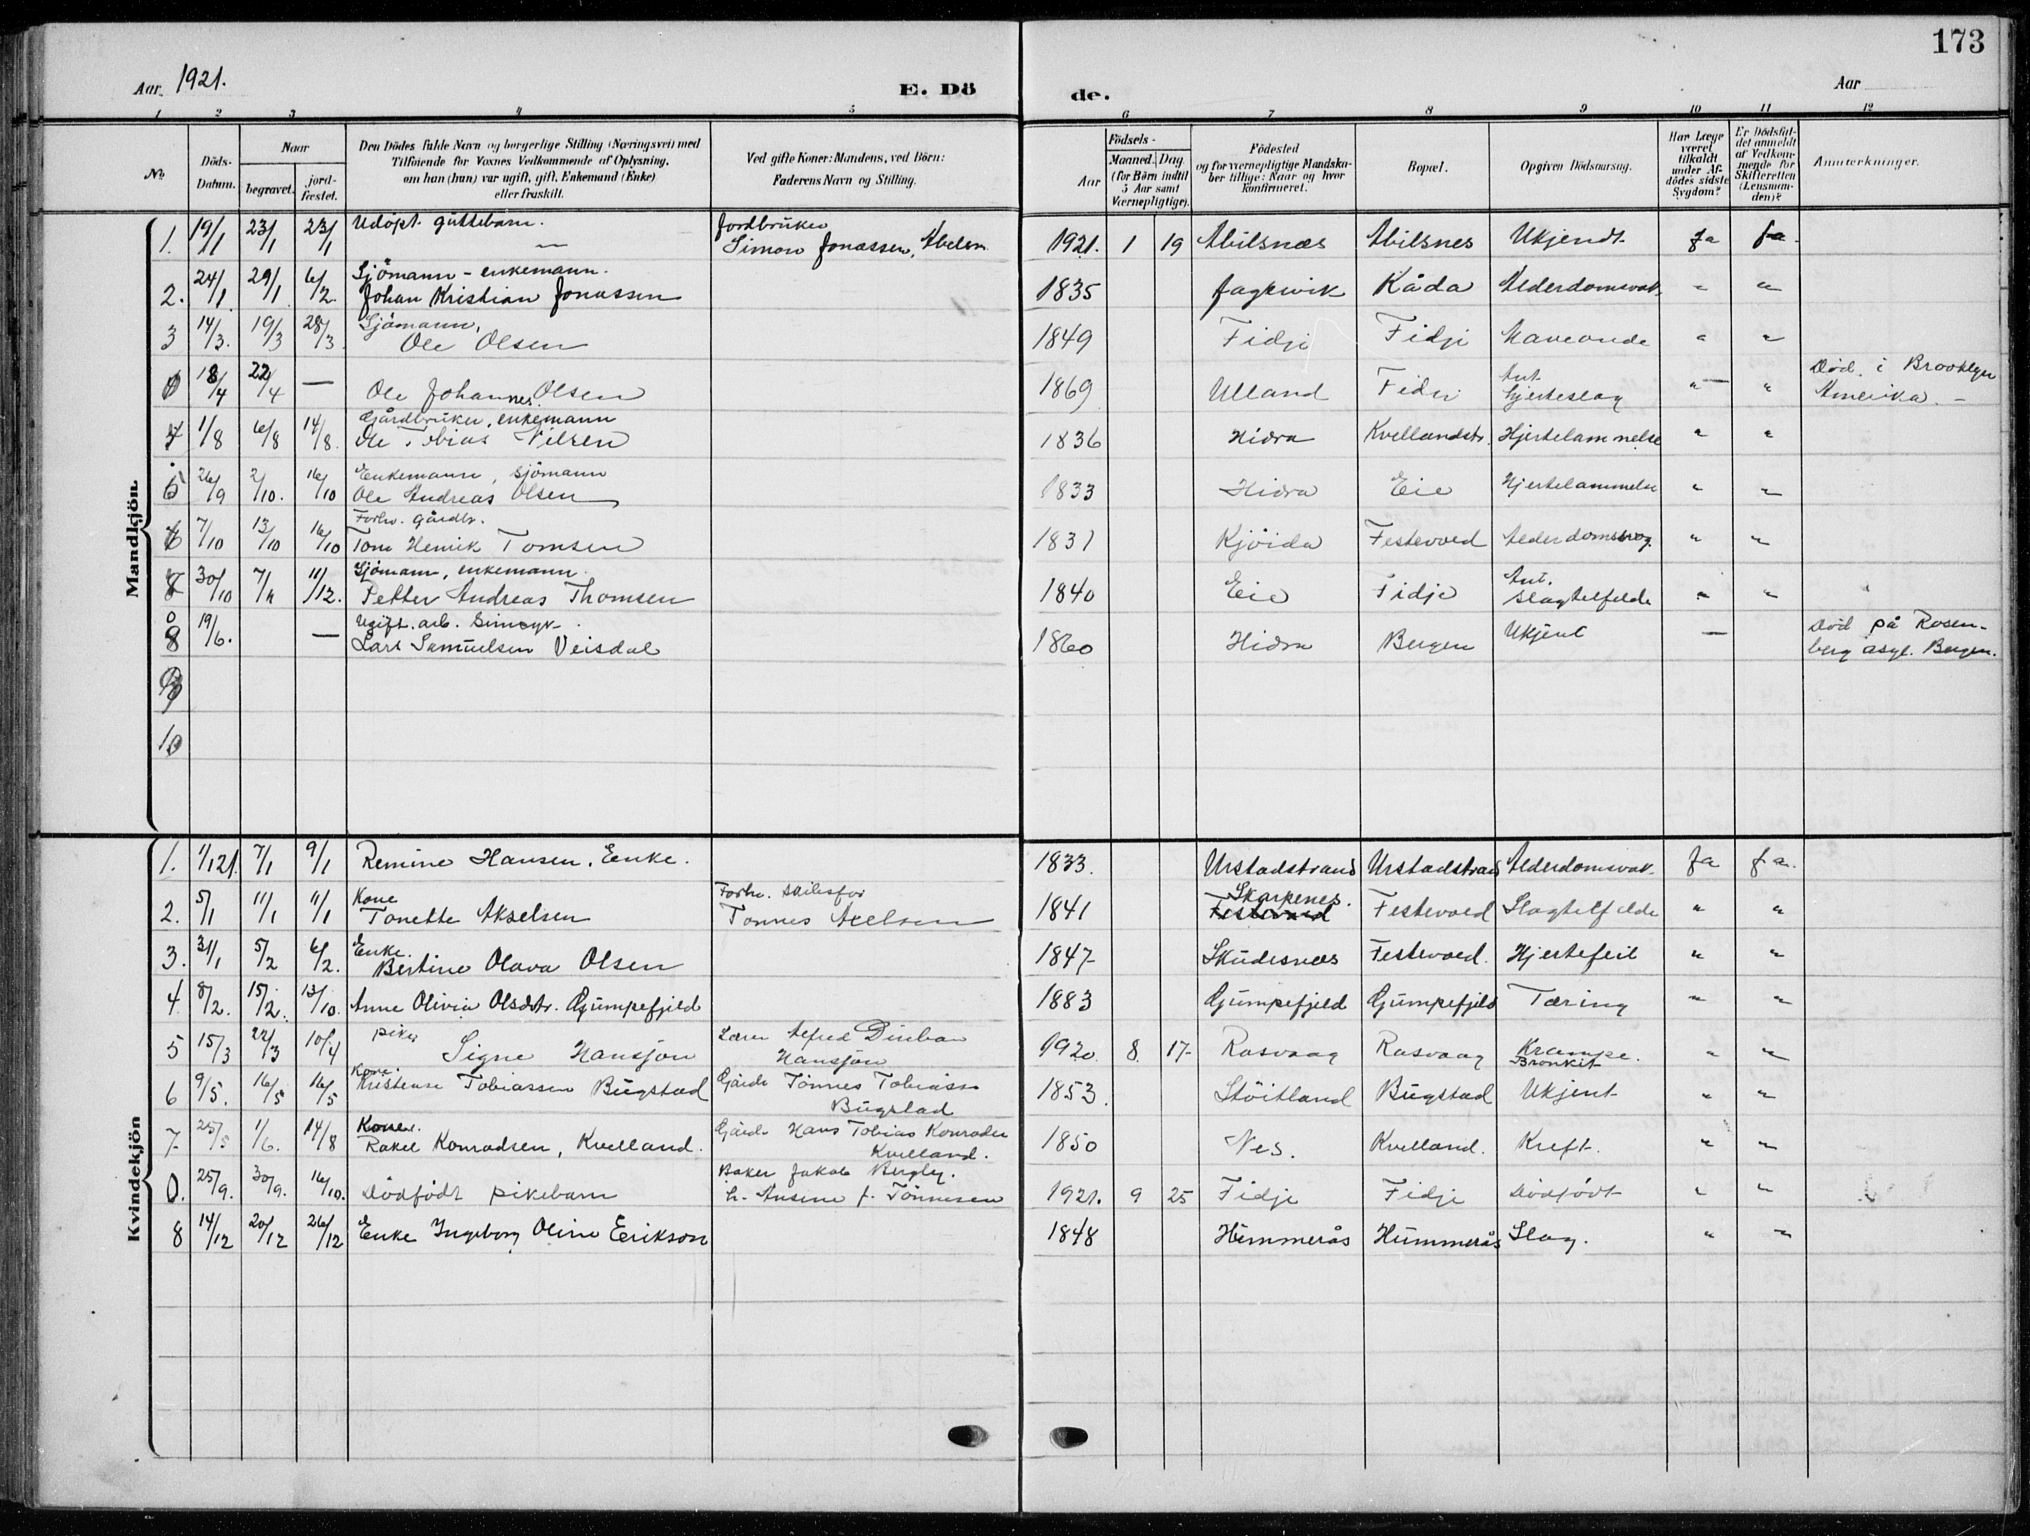 173
Aar 1921.
E. Dö
de.
Aar
1 2 3 4 5 6 7 8 9 10 11 12
No.
Döds-Datum.
Naar
begravet.
jord-fæstet.
Den Dödes fulde Navn og borgerlige Stilling (Næringsvei) med
Tilföiende for Voxnes Vedkommende af Oplysning,
om han (hun) var ugift, gift, Enkemand (Enke)
eller fraskilt.
Ved gifte Koner: Mandens, ved Börn:
Faderens Navn og Stilling.
Födsels-
Aar
Maaned. Dag
(for Börn indtil
5 Aar samt
Værnepligtige).
Födested
og for værnepligtige Mandska-
ber tillige: Naar og hvor
konfirmeret.
Bopæl.
Opgiven Dödsaarsag.
Har Læge
været
tilkaldt
under Af-
dödes sidste
Sygdom?
Er Dödsfal-
det anmeldt
af Vedkom-
mende for
Skifteretten
(Lensman-
den)?
Anmærkninger.
Mandkjön.
1. 19/1 23/1 23/1 Udöpt guttebarn. Jordbruker
Simon Jonassen, 1921. 1 19 Abilsnæs Abilsnes Ukjendt Ja Ja.
2. 24/1 29/1 6/2 Sjömann - enkemann.
Johan Kristian Jonassen 1835 Kåda " "
3 14/3. 19/3 28/3 Sjömann,
Ole Olsen 1849 Fidje Fidje " "
0 18/4 22/4 — Ole Johannes Olsen 1869 Ulland Fidje Ant.
hjerteslag " — " Död i Brooklyn
Amerika. –
4 1/8 6/8 14/8. Gårdbruker, enkemann
Ole Tobias Nilsen 1836 Hidra Kvellandstr. Hjertelammelse " "
5 26/9 2/10. 16/10 Enkemann, sjömann
Ole Andreas Olsen 1833 Hidra Eie Hjertelammelse " "
6 7/10 13/10 16/10 Forhv. gårdbr.
Tom Henrik Tomsen 1831 Festevoed " "
7 30/10 7/11 11/12. Sjömann, enkemann.
Petter Andreas Thomsen 1840 Eie Fidje Ant.
slagtilfelde " "
8 19/6. — Ugift. arb. Sinsyk.
Lars Samuelsen Veisdal 1860 Hidra Bergen Ukjent — Död på Rosen-
berg asyl. Bergen.
9
10
Kvindekjön
1. 1/1 21. 7/1 9/1 Remine Hansen. Enke. 1833. Urstadstrand Urstadstrand Alderdomsvak. Ja Ja.
2. 5/1 11/1 11/1 Kone
Tonette Akselsen Forhv.
Tonnes Axelsen 1841 Skarpenes.
Festevoed Festevoed Slagtilfelde " "
3. 31/1 5/2 6/2. Enke.
Bertine Olava Olsen 1847 Skudesnæs Festevoed. Hjertefeil " "
4 8/2. 15/2. 13/10. Anne Olivia Olsdtr. Gjumpefjeld 1883 Gjumpefjeld Gjumpefjeld Tæring " "
5 15/3 22/3 10/4 pike
Signe Hansjon Lærer Alfred
Hansjon 1920 8. 17- Rasvaag Rasvaag Krampe.
Bronkit " "
6 9/5. 16/5 16/5 Kone.
Kristense Tobiassen Bugstad Gårdb Tönnes Tobiass
Bugstad 1853. Stöitland Bugstad Ukjent " "
7 25/5 1/6. 14/8 Kone.
Rakel Konradsen, Kvelland. Gårdb Hans Tobias Konradsen
Kvelland. 1850 Nes. Kvelland. Kreft. " "
0. 25/9. 30/9. 16/10. Dödfödt pikebarn Baker Jakob Bergly.
h. Ansine f. Tönnesen 1921. 9 25 Fidje Fidje Dödfödt " "
8 14/12 20/12 26/12 Enke Ingeborg Oline Erikson 1848 Hummerås Hummerås Slag. " "